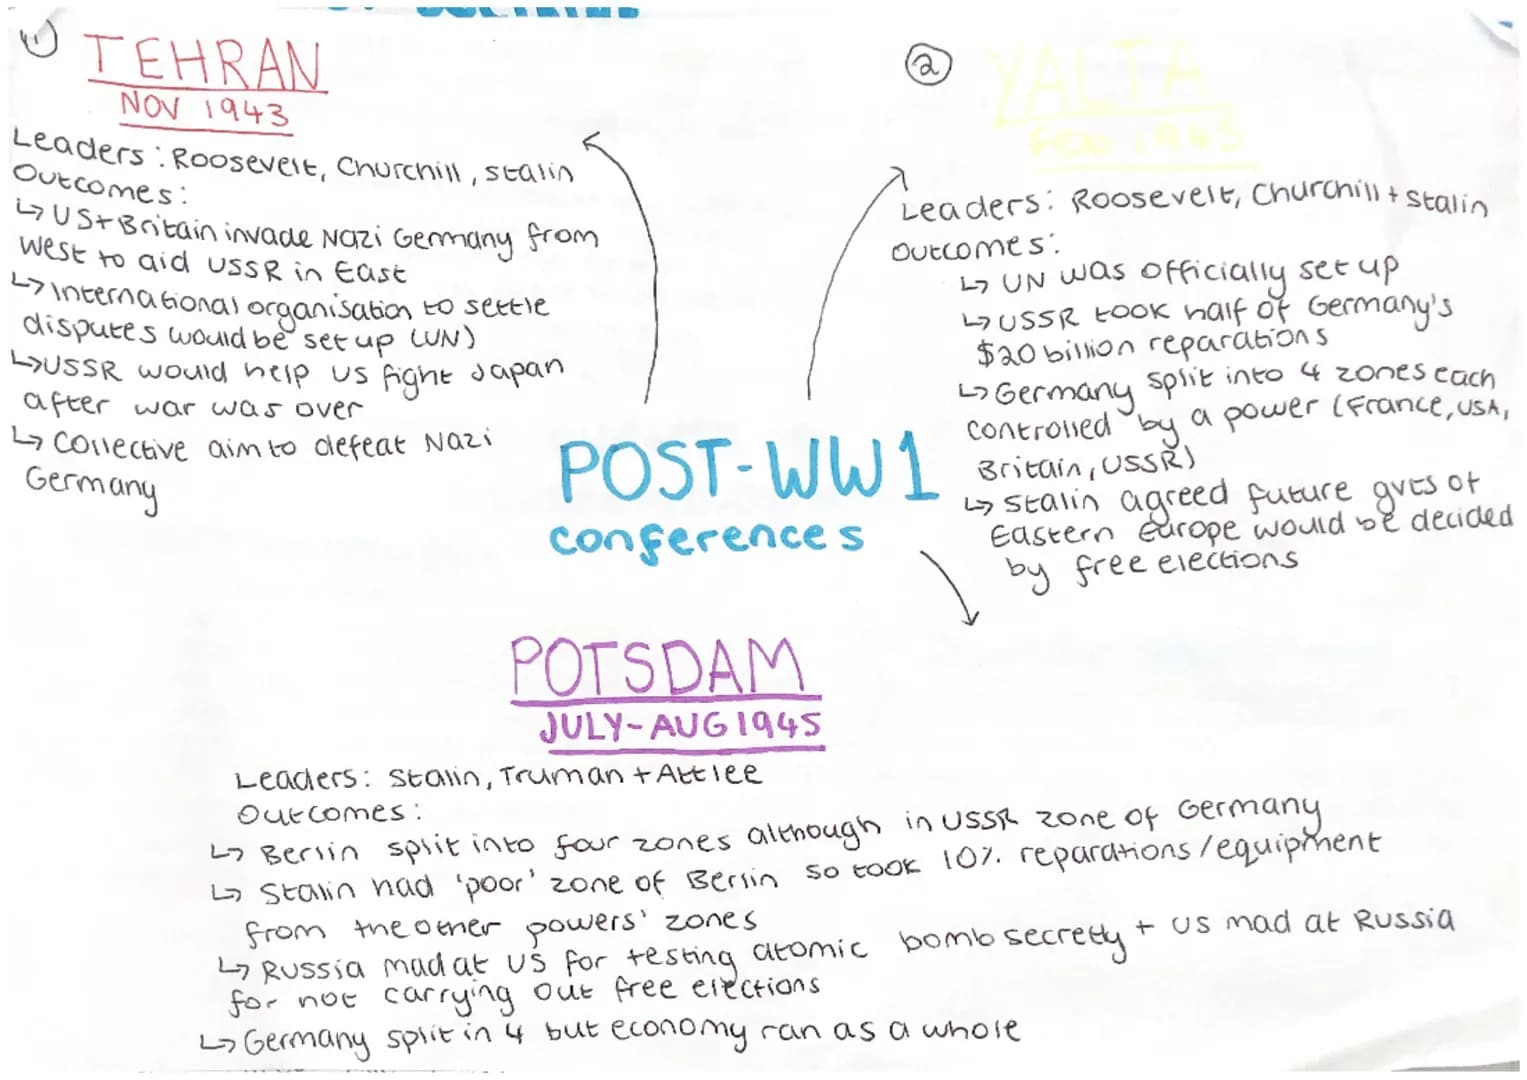 1
TEHRAN
NOV 1943
Leaders: Roosevelt, Churchill, Stalin
Outcomes:
↳ US + Britain invade Nazi Germany from
West to aid USSR in East
↳ International organisation to settle
disputes would be set up (UN)
↳ USSR would help US fight Japan
after war was over
↳ Collective aim to defeat Nazi
Germany
2
YALTA
Feb 1945
Leaders: Roosevelt, Churchill + Stalin
Outcomes:
↳ UN was officially set up
↳ USSR took half of Germany's
$20 billion reparations
↳ Germany split into 4 zones each
controlled by a power (France, USA,
Britain, USSR)
↳ Stalin agreed future gvts of
Eastern Europe would be decided
by free elections
POST-WW1
conferences
POTSDAM
JULY-AUG 1945
Leaders: Stalin, Truman + Attlee
Outcomes:
↳ Berlin split into four zones although in USSR zone of Germany
↳ Stalin had 'poor' zone of Berlin so took 10% reparations/equipment
from the other powers' zones
↳ Russia mad at US for testing atomic bomb secretly + US mad at Russia
for not carrying out free elections
↳ Germany split in 4 but economy ran as a whole